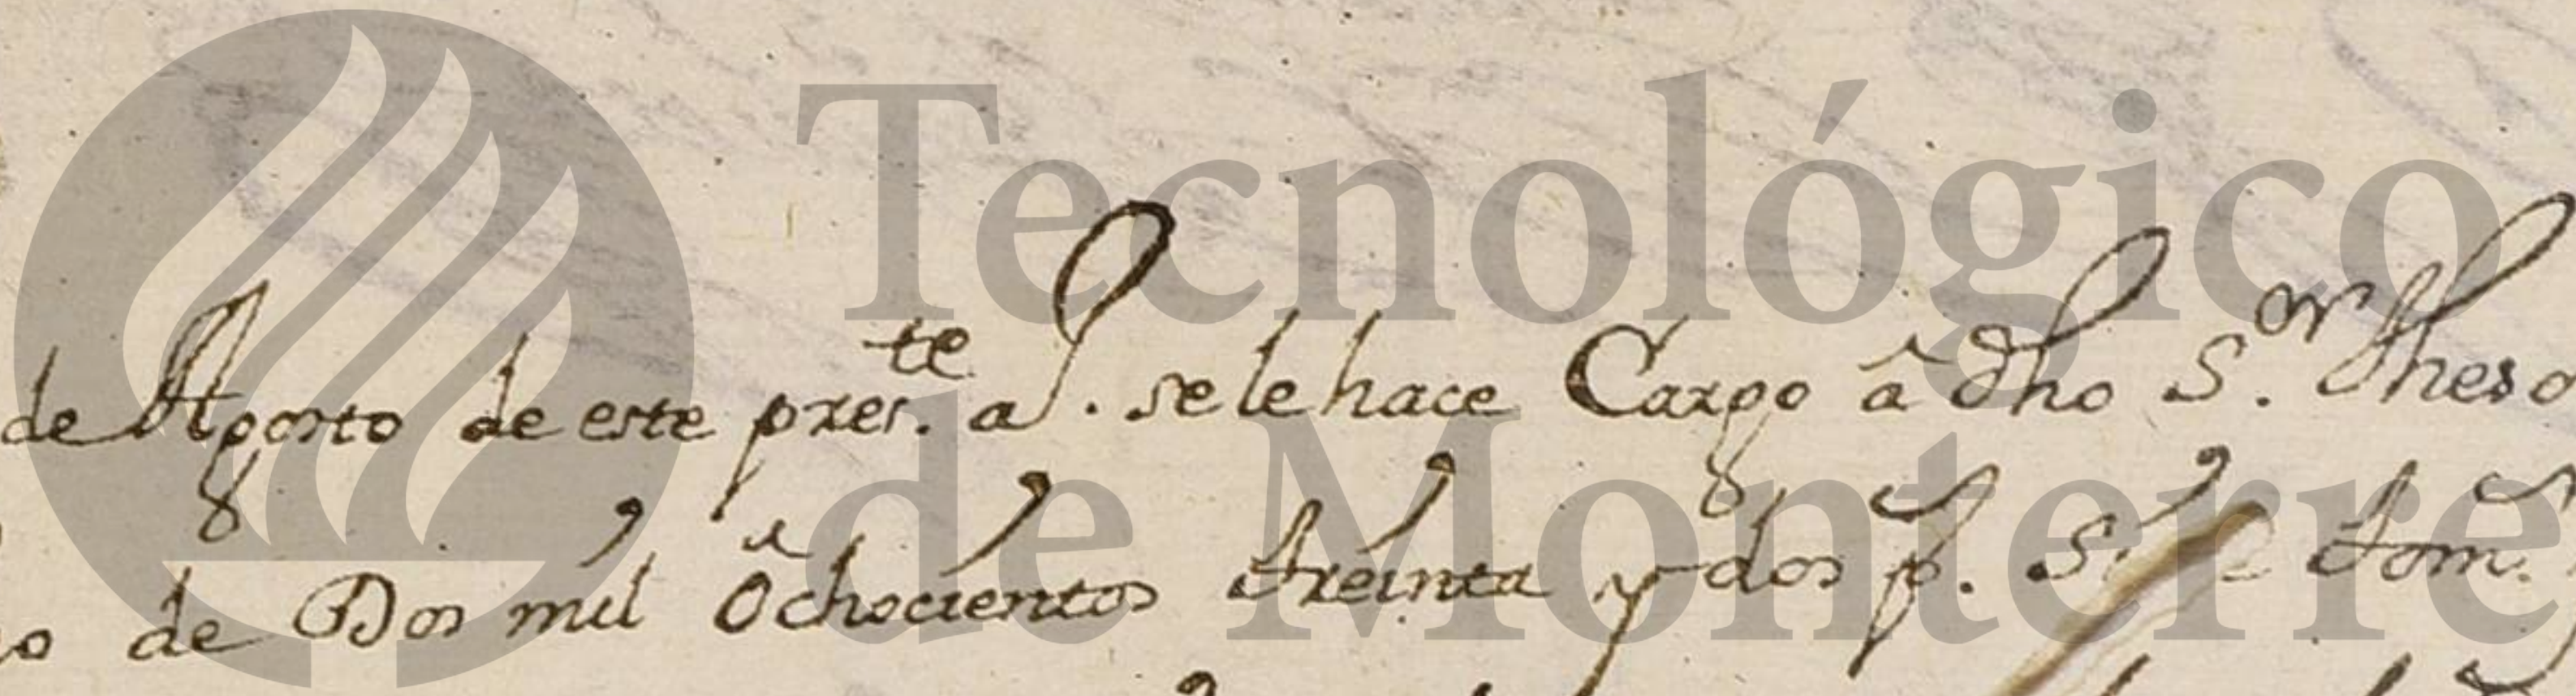 Tecnológico
de Monterre
de Agosto de este pres.te a.s se le hace Cargo â dho S.or Theso
o de Dos mil ôchocientos treinta y dos p.s S. tom.